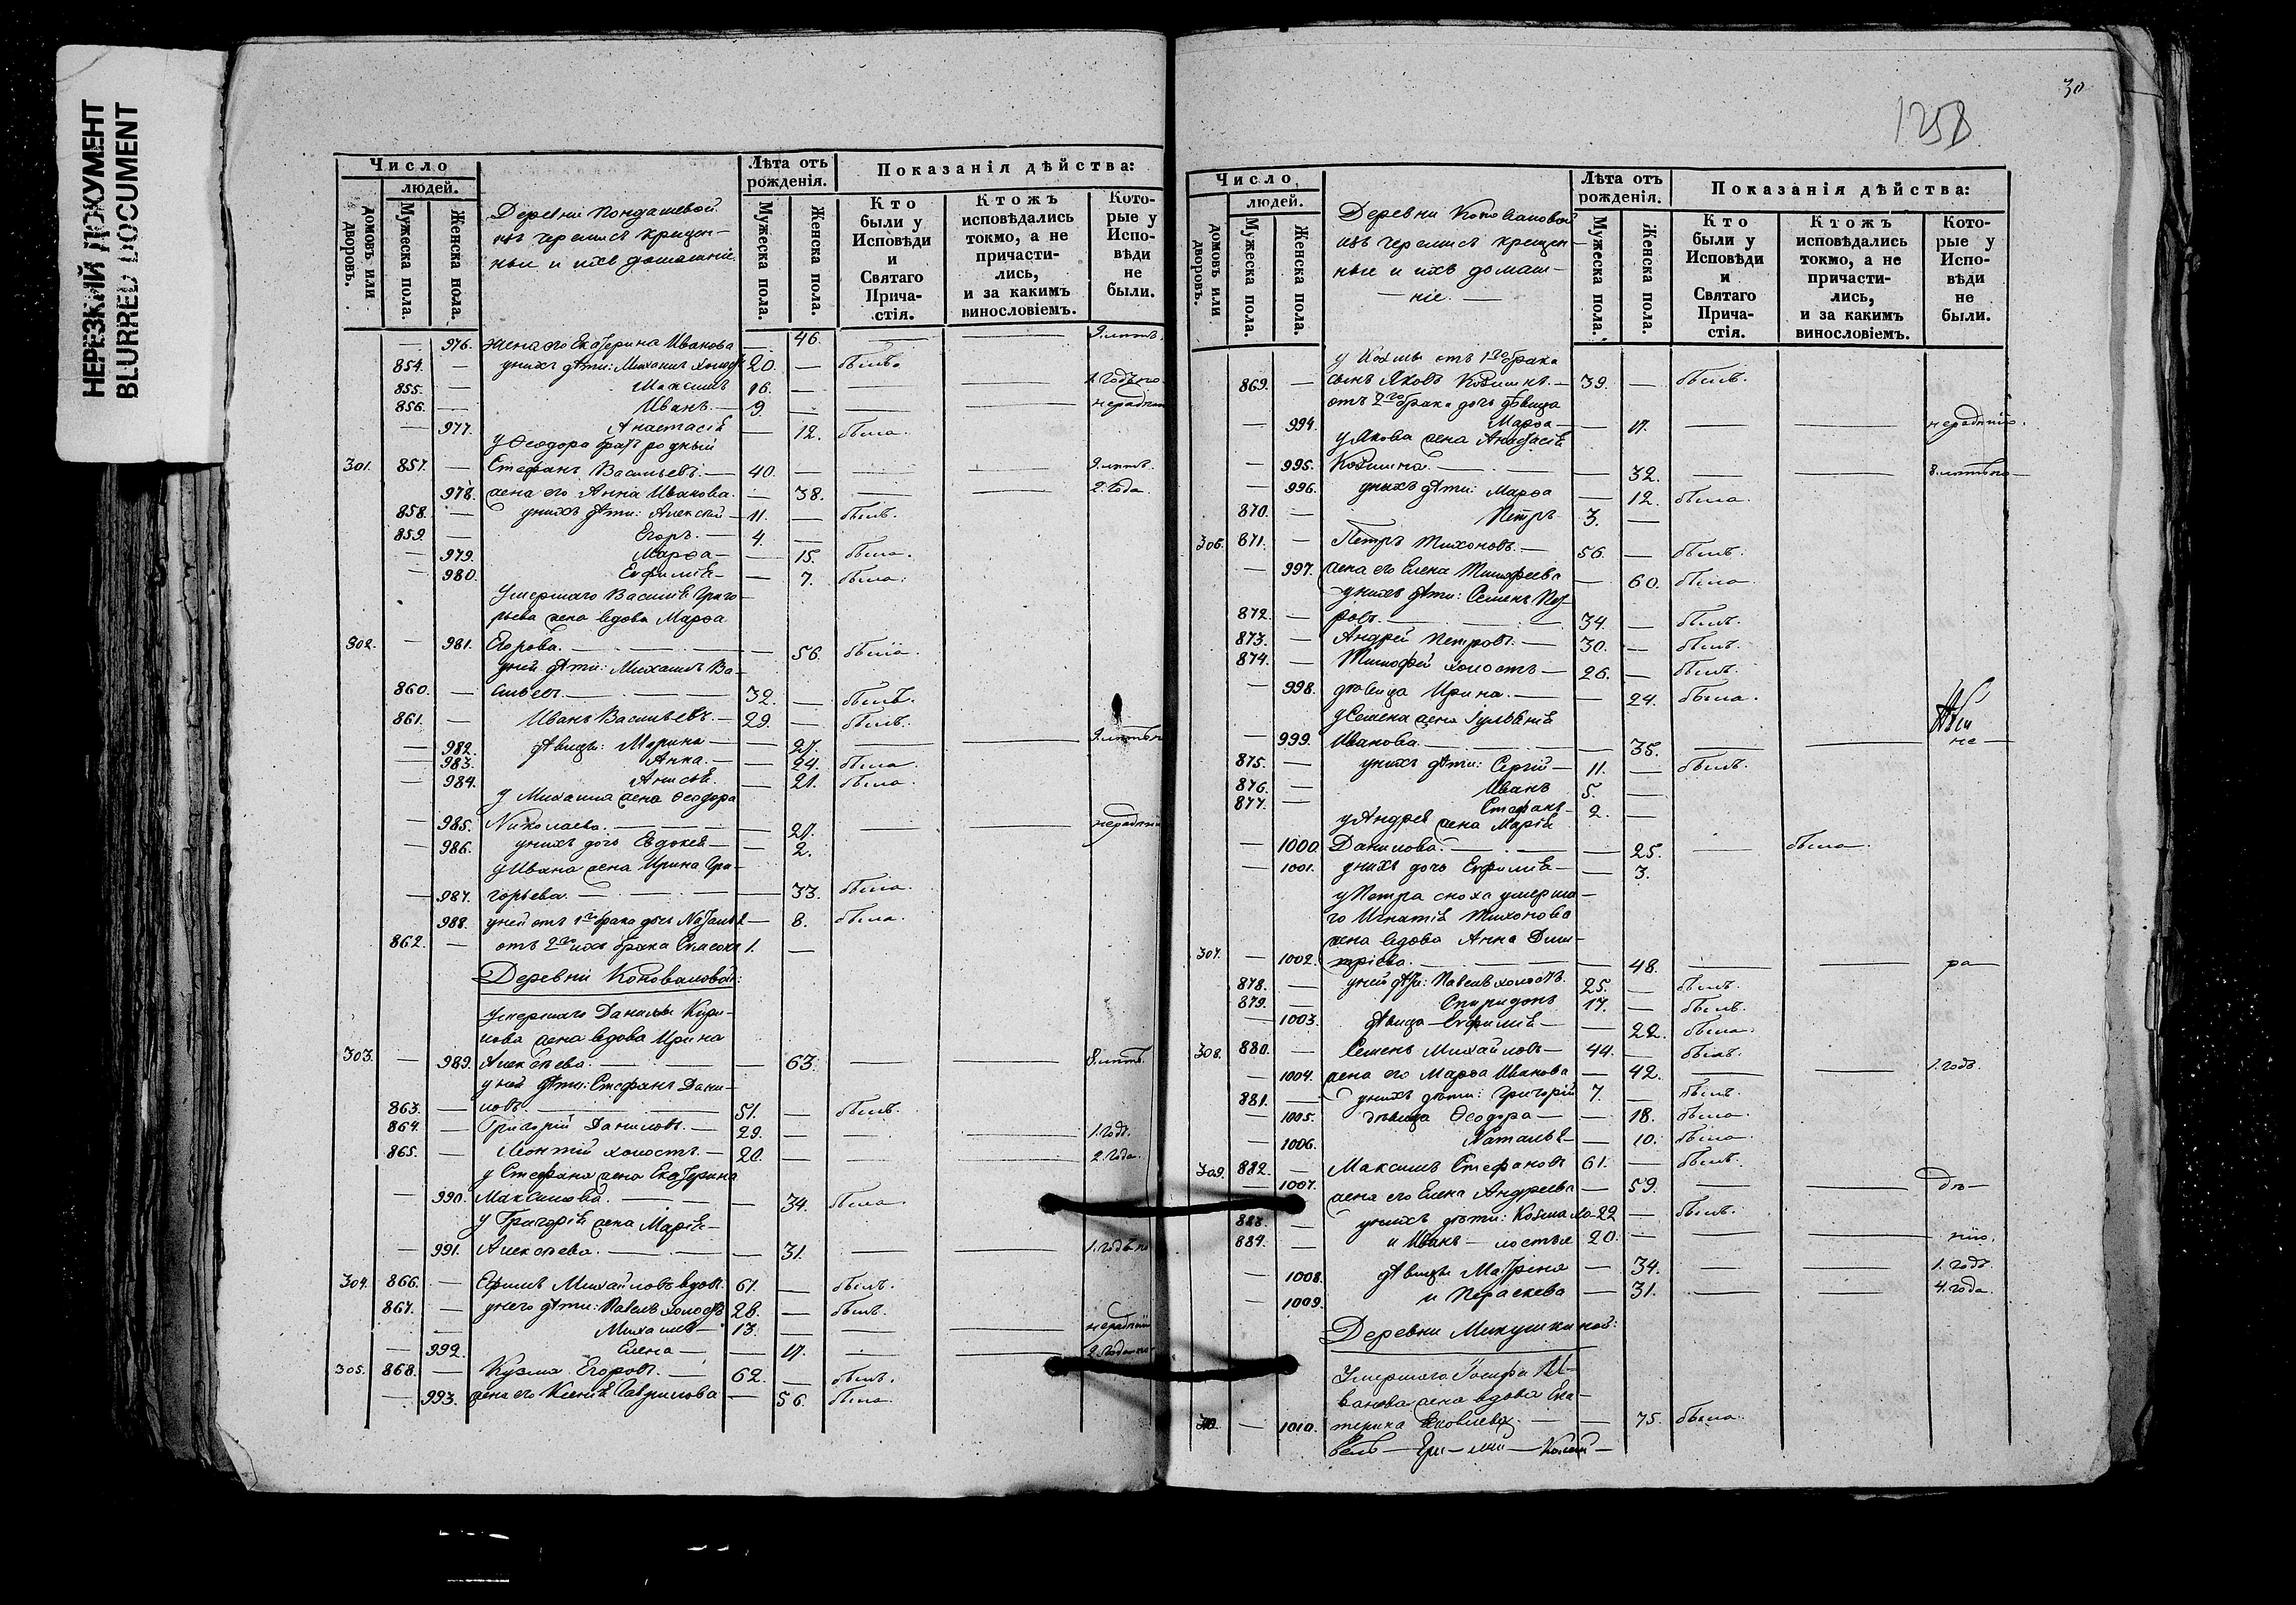 НЕРЕЗКИЙ ДОКУМЕНТ
BLURRED DOCUMENT
Число
людей.
домовъ или дворовъ.
Мужеска пола.
Женска пола.
Деревни
изъ черемисъ крещен-
ные и ихъ домашніе.
Лѣта отъ рожденія.
Мужеска пола.
Женска пола.
Показанія дѣйства:
Кто были у Исповѣди и Святаго Причастія.
Ктожъ исповѣдались токмо, а не причастились, и за какимъ винословіемъ.
Которые у Исповѣди не были.
— 976. жена его Екатерина Иванова — 46. — — 9. лѣтъ.
854. — у нихъ дѣти: Михаилъ холостъ 20. — былъ.
855. — Максимъ 16. —
856. — Иванъ — 9 — — —
— 977. Анастасія — 12. была.
у Ѳеодора братъ родный
301. 857. — Стефанъ Васильевъ — 40. — — — 9. лѣтъ.
978. жена его Анна Иванова. — 38. — — 2. года.
858. — у нихъ дѣти: Алексій — 11. — былъ.
859. — Егоръ. — 4. —
— 979. Марѳа — — 15. была.
— 980. Евфимія — — 7. была.
Умершаго Василія Григо-
рьева жена вдова Марѳа
302. — 981. Егорова. — 56. была.
у ней дѣти: Михаилъ Ва-
860. — сильевъ. — 32. — былъ.
861. — Иванъ Васильевъ. — 29. — былъ.
— 982. дѣвицы: Марина — — 27. — —
— 983. Анна. — — 24. была.
— 984. Анисія. — 21. была.
у Михаила жена Ѳеодора
— 985. Николаева. — — 27. — —
— 986. у нихъ дочь Евдокія — — 2.
у Ивана жена Ирина Гри-
— 987. горьева. — — 33. была.
988. у ней отъ 1го брака дочь Наталья — 8. была.
862. — отъ 2го ихъ брака 1. —
Деревни Коноваловой:
Умершаго Данилы Кири-
лова жена вдова Ирина
303. — 989. Алексѣева. — — 63. — — 8. лѣтъ.
у ней дѣти: Стефанъ Дани-
863. — ловъ. — 51. — былъ.
864. — Григорій Даниловъ. — 29. — — — 1. годъ.
865. — Леонтій холостъ. — 20. — — — 2. года.
у Стефана жена Екатерина
— 990. Максимова. — — 34. была.
у Григорія жена Марія —
— 991. Алексѣева. — — 31. — — 1. годъ по
304. 866. — Ефимъ Михайловъ вдовъ. 61. — былъ.
867. — у него дѣти: Павелъ холостъ 28. — былъ.
— Михаилъ — 13. — — —
— 992. Елена — — 17. — —
305. 868. — Кузма Егоровъ. — 62. — былъ.
— 993. жена его Ксенія Гаврилова — 56. была.
30
1258
Число
людей.
домовъ или дворовъ.
Мужеска пола.
Женска пола.
Деревни Коноваловой
изъ черемисъ крещен-
ные и ихъ домаш-
— ніе. —
Лѣта отъ рожденія.
Мужеска пола.
Женска пола.
Показанія дѣйства:
Кто были у Исповѣди и Святаго Причастія.
Ктожъ исповѣдались токмо, а не причастились, и за какимъ винословіемъ.
Которые у Исповѣди не были.
у Козмы отъ 1го брака
869. — сынъ Яковъ Козминъ. — 39. — былъ.
отъ 2го брака дочь дѣвица
— 994. Марѳа — — 17. — — нерадѣнію.
у Якова жена Анастасія
— 995. Козмина. — — 32. — — 8. лѣтъ по —
— 996. у нихъ дѣти: Марѳа — 12. была.
870. — Петръ 3. —
306. 871. — Петръ Тихоновъ. — 56. — былъ.
— 997. жена его Елена Тимофеева — 60. была
у нихъ дѣти: Семенъ Пет-
872. — ровъ. — 34. — былъ.
873. — Андрей Петровъ. — 30. — былъ.
874. — Тимофей холостъ — 26. — былъ.
— 998. дѣвица Ирина. — — 24. была.
у Семена жена Іуліанія
— 999. Иванова. — — 35. — — не —
875. — у нихъ дѣти: Сергій — 11. — былъ.
876. — Иванъ 5. —
877. — Стефанъ — 2. —
у Андрея жена Марія
— 1000. Данилова. — — 25. — была.
— 1001. у нихъ дочь Евфимія — — 3.
у Петра сноха умерша-
го Игнатія Тихонова
жена вдова Анна Дми-
307. — 1002. тріева. — — 48. — — ра —
878. — у ней дѣти: Павелъ холостъ. 25. — былъ.
879. — Спиридонъ 17. — былъ.
— 1003. дѣвица — Евфимія — — 22. была.
308. 880. — Семенъ Михайловъ — 44. — былъ.
— 1004. жена его Марѳа Иванова — 42. — — 1. годъ.
881. — у нихъ дѣти: Григорій 7. — былъ.
— 1005. дѣвица Ѳеодора — — 18. была.
— 1006. Наталья — — 10. была.
309. 882. — Максимъ Стефановъ 61. — былъ.
— 1007. жена его Елена Андреева — 59. — — дѣ —
883. — у нихъ дѣти: Козма хо- 22 — былъ.
884. — и Иванъ — лостые 20. — — — нію.
— 1008. дѣвицы Матрена — 34. — — 1. годъ.
— 1009. и Параскева — 31. — — 4. года.
Деревни Микушкиной:
Умершаго Іосифа И-
ванова жена вдова Ека-
310. — 1010. терина Яковлева. — — 75. была.